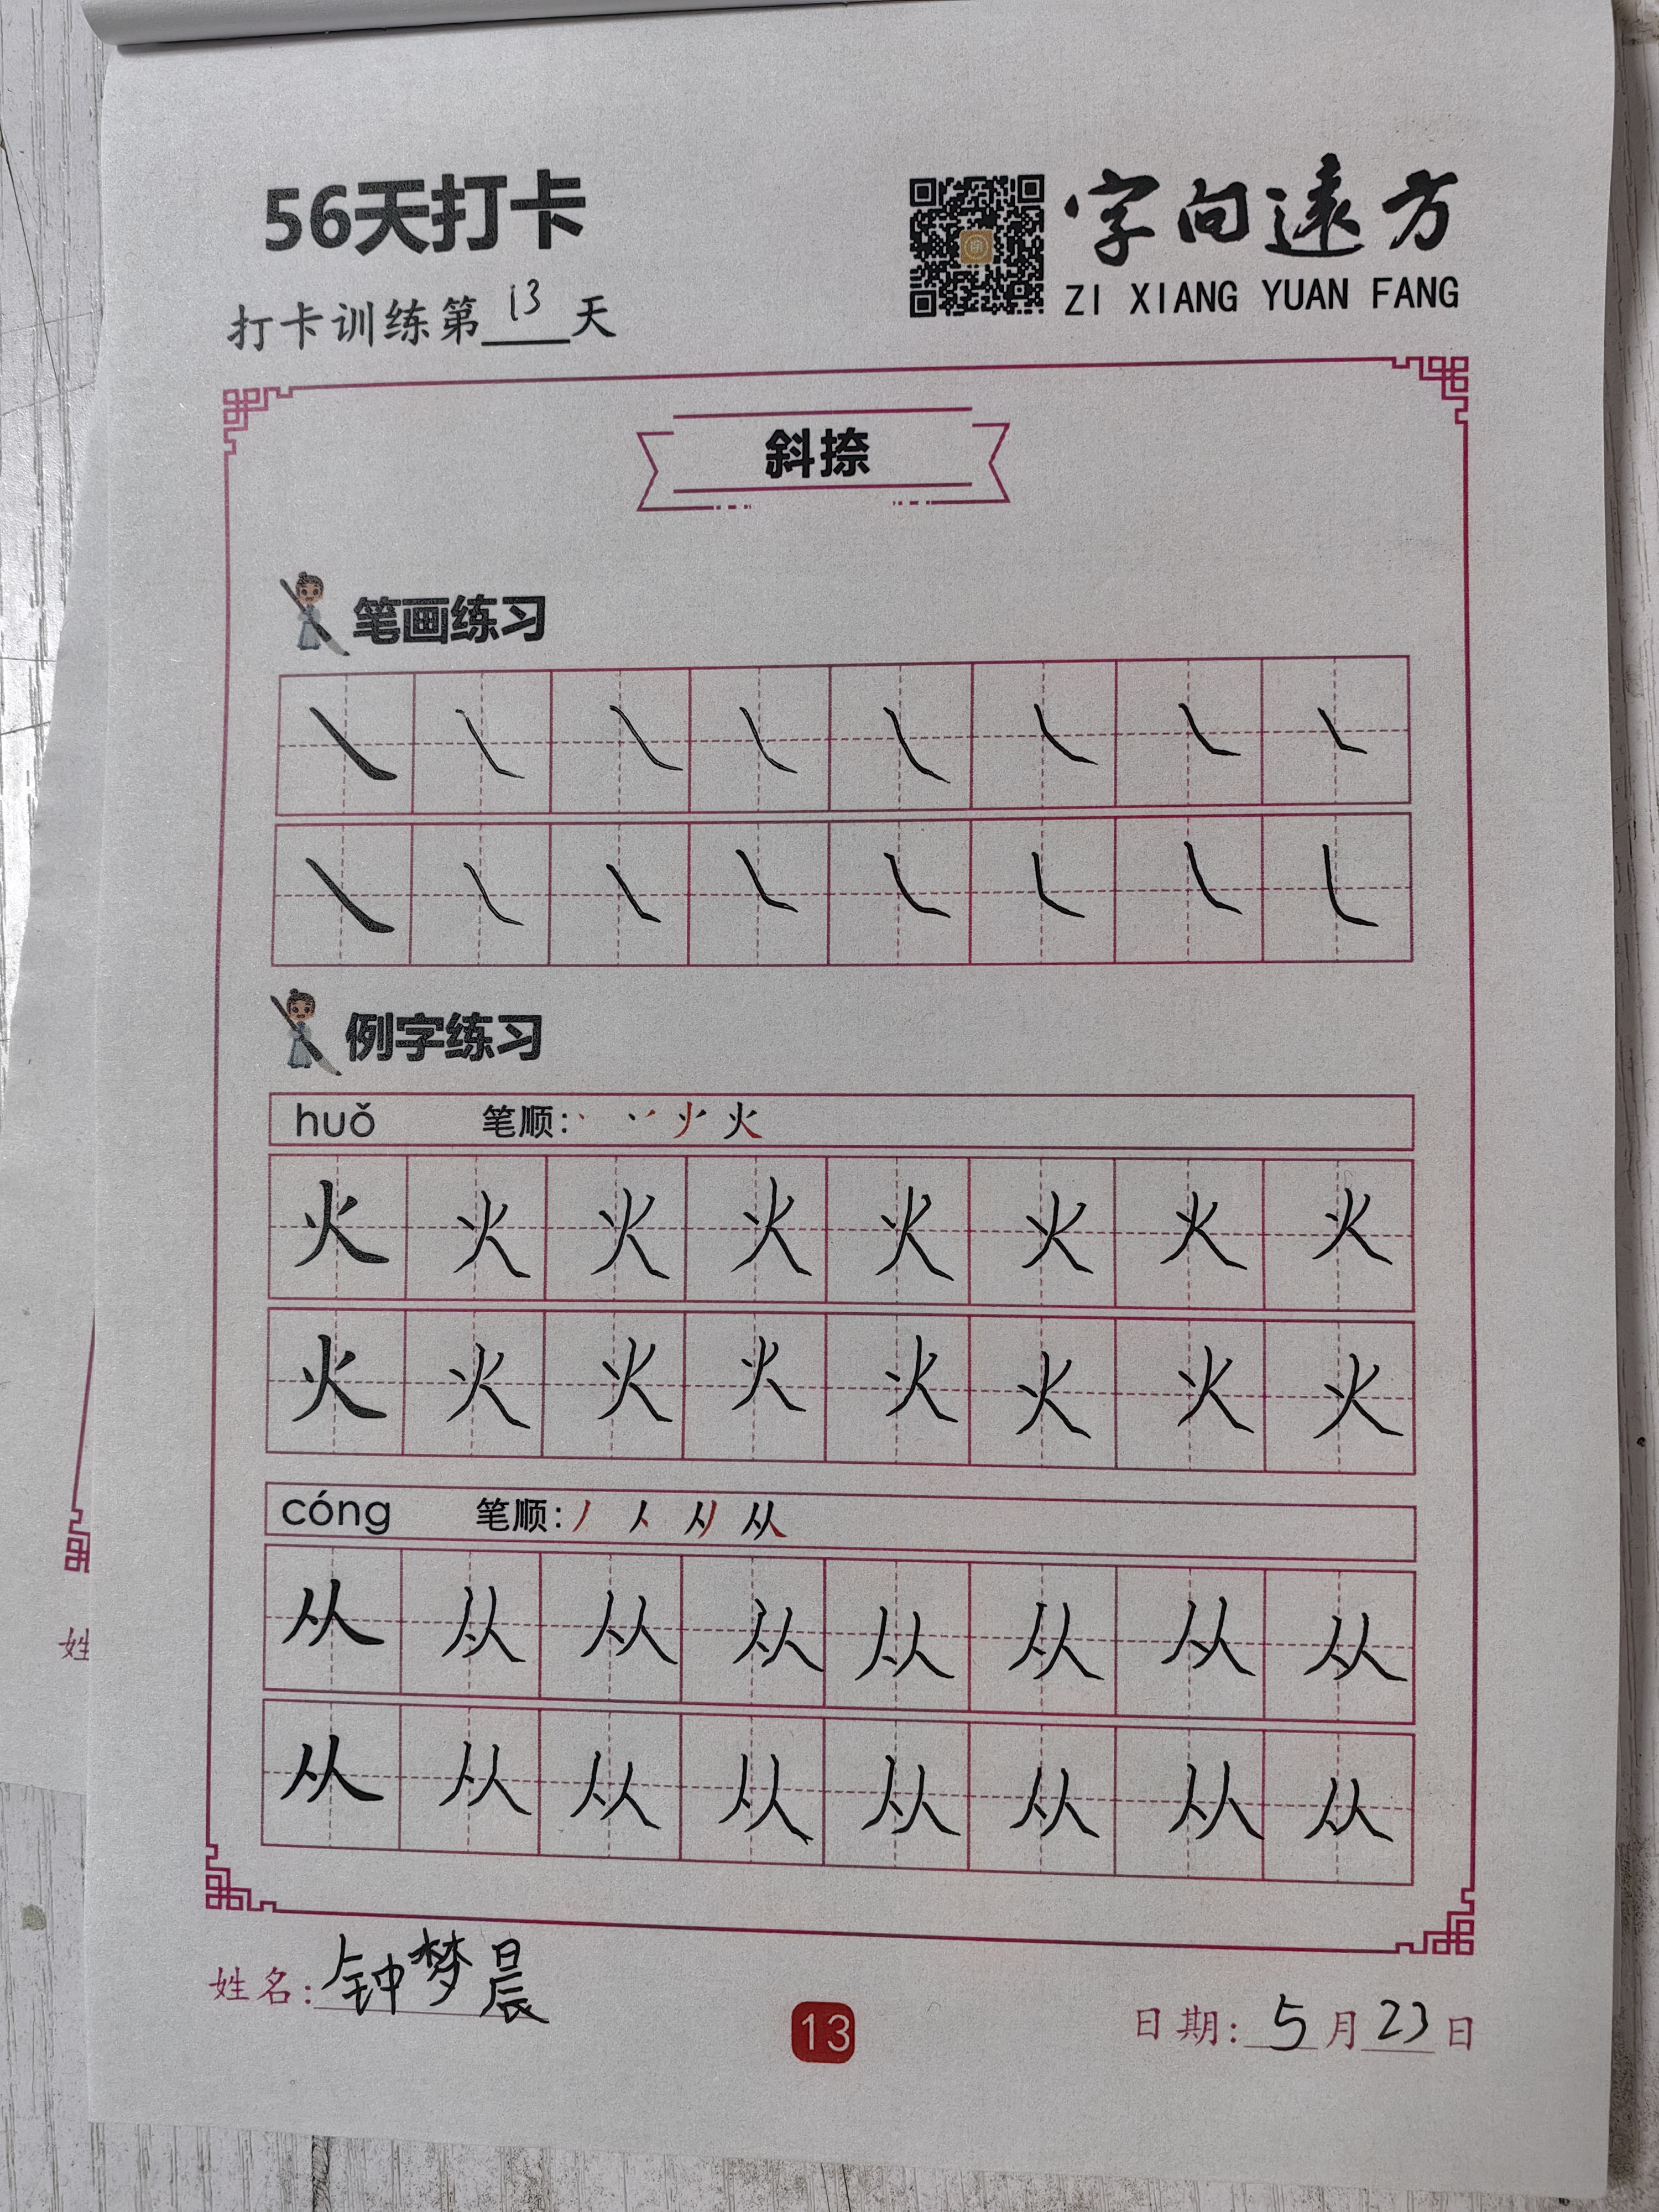 56天打卡
字向遠方
ZI XIANG YUAN FANG
打卡训练第13天
斜捺
笔画练习
例字练习
huǒ 笔顺: 火
火 火 火 火 火 火 火 火
火 火 火 火 火 火 火 火
cóng 笔顺: 丿 人 从
从 从 从 从 从 从 从 从
从 从 从 从 从 从 从 从
姓
姓名: 钟梦晨
13
日期: 5月23日